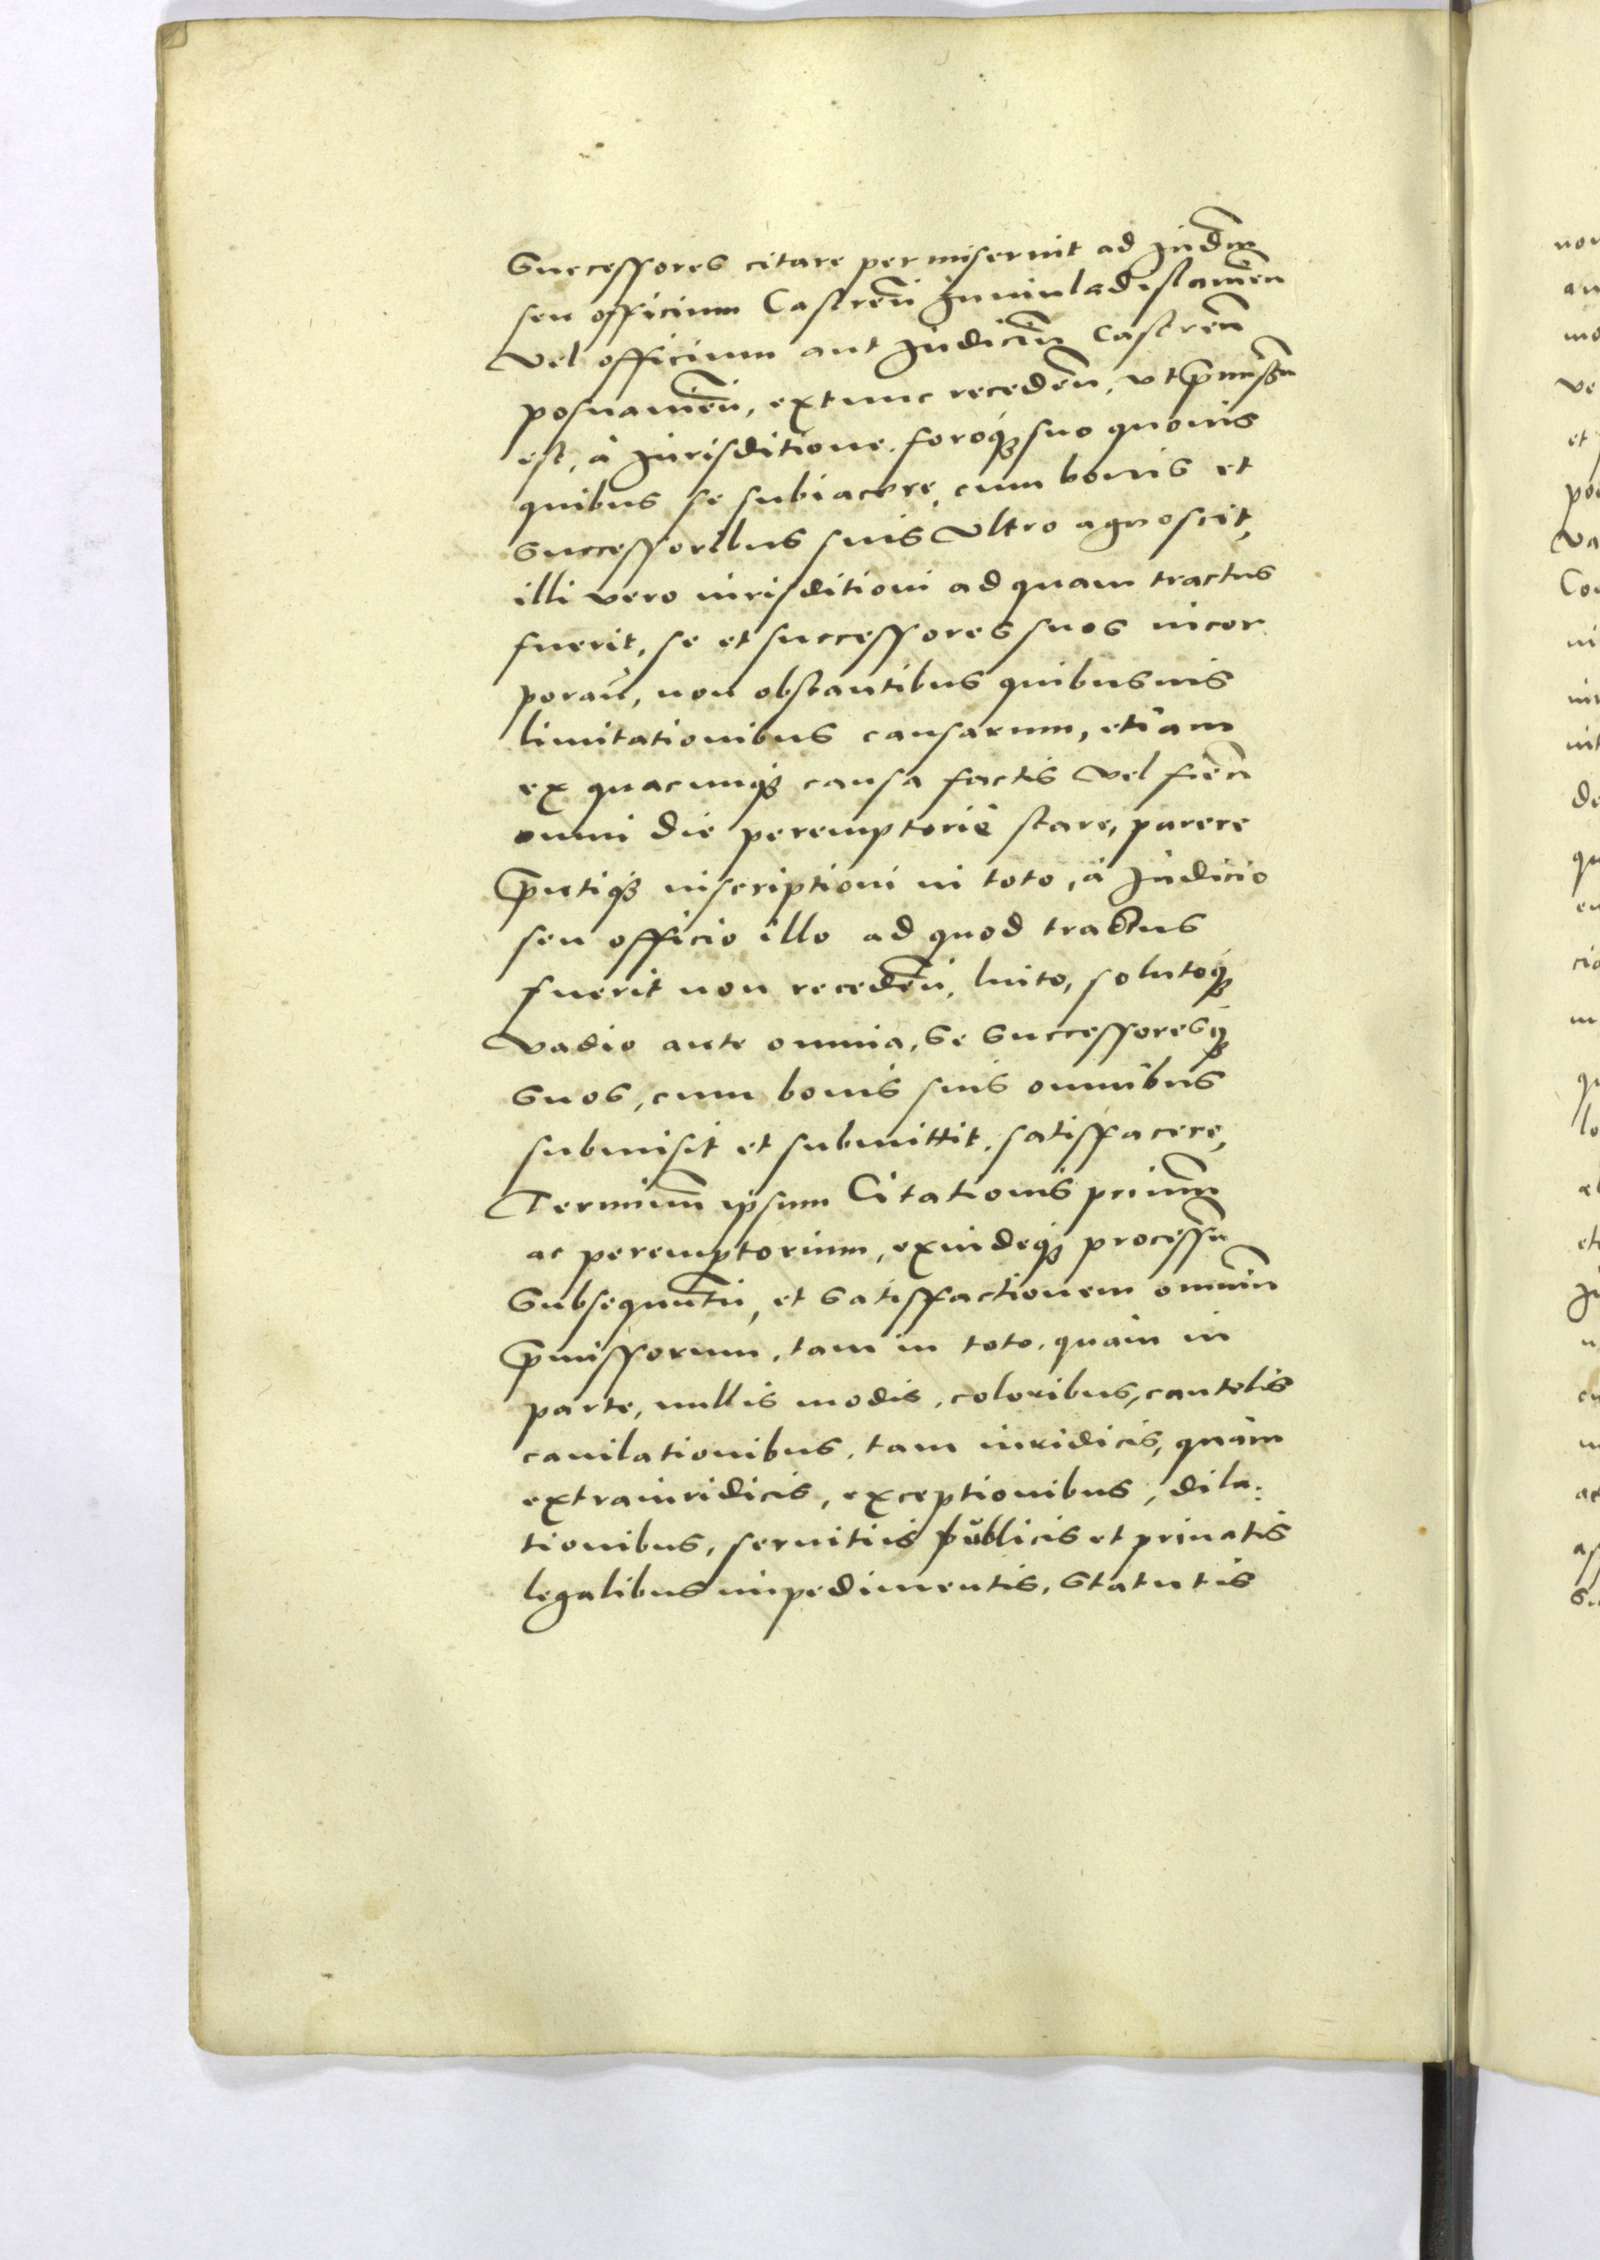 Successores citare permiserint ad Iudm
seu officium Castren̄ Iuniuladislauien̄
vel officium aut Iudiciū Castren̄
posnanien̄, extunc receden̄, vt p̄missū
est, à Iurisditione foroq̨ suo quouis
quibus se subiacere, cum bonis et
successoribus suis Vltro agnoscit,
illi vero iurisditioni ad quam tractus
fuerit, se et successores suos incor
poraū, non obstantibus quibusuis
limitationibus causarum, etiam
ex quacunq̨ causa factis vel fien̄
omni die peremptorie stare, parere
p̄ntiq̨ inscriptioni in toto, à Iudicio
seu officio illo ad quod tractus
fuerit non receden̄, luito, solutoq̨
vadio ante omnia, se successoresq̨
suos, cum bonis suis omnibus
submisit et submittit, satisfacere,
Terminū ipsum Citationis primū
ac peremptorium, exindeq̨ processū
Subsequutū, et satisfactionem omniū
p̄missorum, tam in toto, quam in
parte, nullis modis, coloribus, cautelis
cauilationibus, tam iuridicis, quàm
extraiuridicis, exceptionibus, dila:
tionibus, seruitiis publicis et priuatis
legalibus impedimentis, statutis